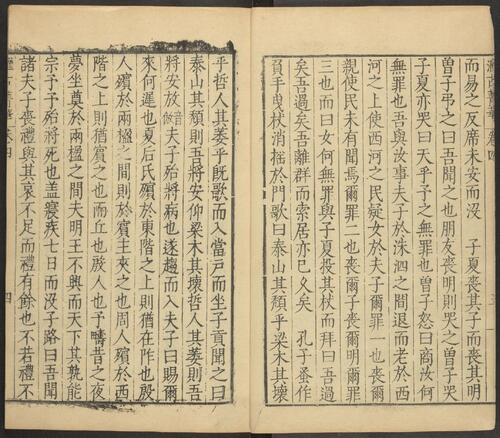 而易之反席未安而沒　子夏喪其子而喪其明
曾子弔之曰吾聞之也朋友喪明則哭之曾子哭
子夏亦哭曰天乎予之無罪也曾子怒曰商汝何
無罪也吾與汝事夫子於洙泗之間退而老於西
河之上使西河之民疑女於夫子爾罪一也喪爾
親使民未有聞焉爾罪二也喪爾子喪爾明爾罪
三也而曰女何無罪與子夏投其杖而拜曰吾過
矣吾過矣吾離群而索居亦已久矣　孔子蚤作
負手曳杖消搖於門歌曰泰山其頹乎梁木其壞
乎哲人其萎乎既歌而入當戶而坐子貢聞之曰
泰山其頹則吾將安仰梁木其壞哲人其萎則吾
將安放夫子殆將病也遂趨而入夫子曰賜爾
來何遲也夏后氏殯於東階之上則猶在阼也殷
人殯於兩楹之間則於賓主夾之也周人殯於西
階之上則猶賓之也而丘也殷人也予疇昔之夜
夢坐奠於兩楹之間夫明王不興而天下其孰能
宗予予殆將死也蓋寢疾七日而沒子路曰吾聞
諸夫子喪禮與其哀不足而禮有餘也不若禮不
四